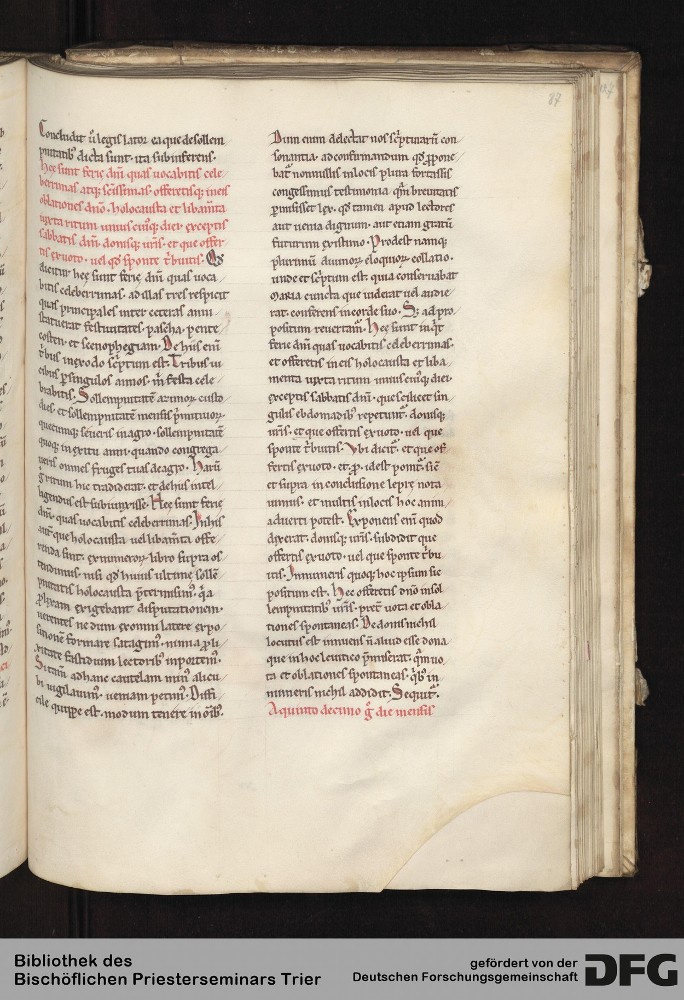 87
Concludit u̅ legis lator ea que de sollem
pnitatib; dicta sunt. ita subinferens.
Hęc sunt ferię dn̅i quas uocabitis cele
berrimas atq; sc̅issimas. offeretisq; in eis
oblationes dn̅o. holocausta et libam̅ta
iuxta ritum unius cuiusq; diei. exceptis
sabbatis dn̅i. donisq; ur̅is. et que offer
tis ex uoto. uel qd̅ sponte t̅buitis. Qd̅
dicitur hęc sunt ferię dn̅i quas uoca
bitis celeberrimas. ad illas tres respicit
quas principales inter ceteras anni
statuerat festiuitates. pascha. pente
costen. et scenophegiam. De hiis eni̅
t̅bus in exodo sc̅ptum est. Tribus ui
cibus p singulos annos. m̅ festa cele
brabitis. Sollempnitatē azimor̅ custo
dies. et sollempnitatē mensis p̅mitiuor̅
quecumq; seueris in agro. sollempnitatē
quoq; in exitu anni. quando congrega
ueris omnes fruges tuas de agro. Harū
g̅ ritum hic tradiderat. et de hiis intel
ligendus est subiunxisse. Hec sunt ferię
dn̅i. quas uocabitis celeberrimas. In his
aut̅ que holocausta uel libam̅ta offe
renda sint. ex numeror̅ libro supra os
tendimus. nisi qd̅ huius ultimę sollē
pnitatis holocausta p̅termisim;. q̅a
plixam exigebant disputationem.
uerentes ne dum ex omni latere expo
sitionē formare satagim;. nimia pli
xitate fastidium lectorib; inportem;.
Si tam̅ ad hanc cautelam min; alicu
bi uigilauim;. ueniam petim;. Diffi
cile quippe est. modum tenere in om̅ib;.
Dum enim delectat nos sc̅pturarū con
sonantia. ad confirmandum qd̅ ppone
bat̅ nonnullis in locis plura fortassis
congessimus testimonia. qm̅ breuitatis
pmisisset lex. qd̅ tamen apud lectores
aut uenia dignum. aut etiam gratū
futurum existimo. Prodest namq;
plurimū diuinor̅ eloquior̅ collatio.
unde et sc̅ptum est. quia conseruabat
maria cuncta que uiderat uel audie
rat. conferens in corde suo. S; ad pro
positum reuertam̅. Hęc sunt inq̅t
ferię dn̅i quas uocabitis celeberrimas.
et offeretis in eis holocausta et liba
menta iuxta ritum unius cuiusq; diei.
exceptis sabbatis dn̅i. que scilicet sin
gulis ebdomadib; repetunt̅. donisq;
ur̅is. et que offertis ex uoto. uel que
sponte t̅buitis. Vbi dicit̅. et que of
fertis ex uoto. et. p. idest ponit̅. sic̅
et supra in conclusione leprę nota
uimus. et multis in locis hoc anim
aduerti potest. Exponens eni̅ quod
dixerat. donisq; ur̅is. subdidit que
offertis ex uoto. uel que sponte t̅bu
itis. In numeris quoq; hoc ipsum sic
positum est. Hęc offeretis dn̅o in sol
lempnitatib; ur̅is. pret̅ uota et obla
tiones spontaneas. De donis nichil
locutus est innuens n̅ aliud esse dona
que in hoc leuitico p̅miserat. q̅m uo
ta et oblationes spontaneas. q̅b; in
numeris nichil addidit. Sequit̅.
A quinto decimo g̅ die mensis
Bibliothek des
Bischöflichen Priesterseminars Trier
gefördert von der
Deutschen Forschungsgemeinschaft
DFG